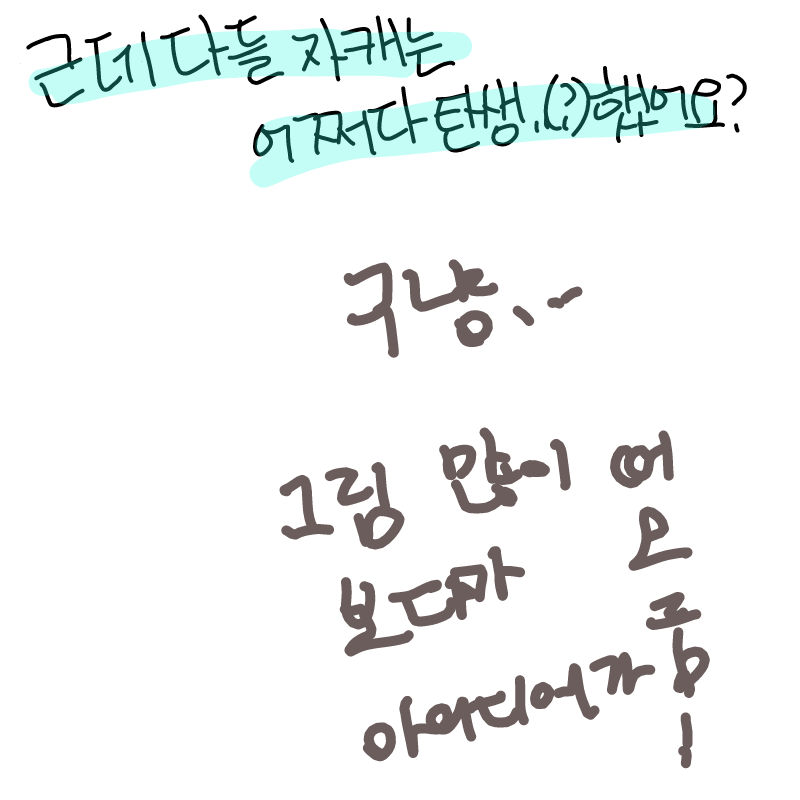 근데 다들 자캐는
어쩌다 탄생.(?)했어요?
구냥..-
그림 많이
보다가
아이디어가
떠
오
름
!